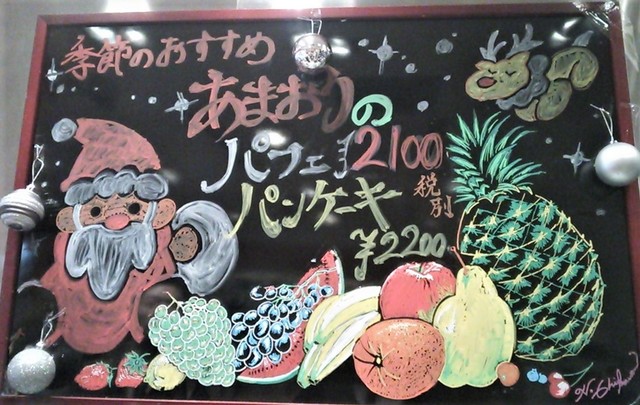 季節のおすすめ
あまおうの
パフェ ¥2100
税別
パンケーキ
¥2200